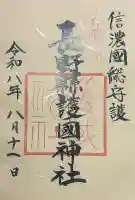 信濃國総守護
長野縣護國神社
令和八年八月十一日